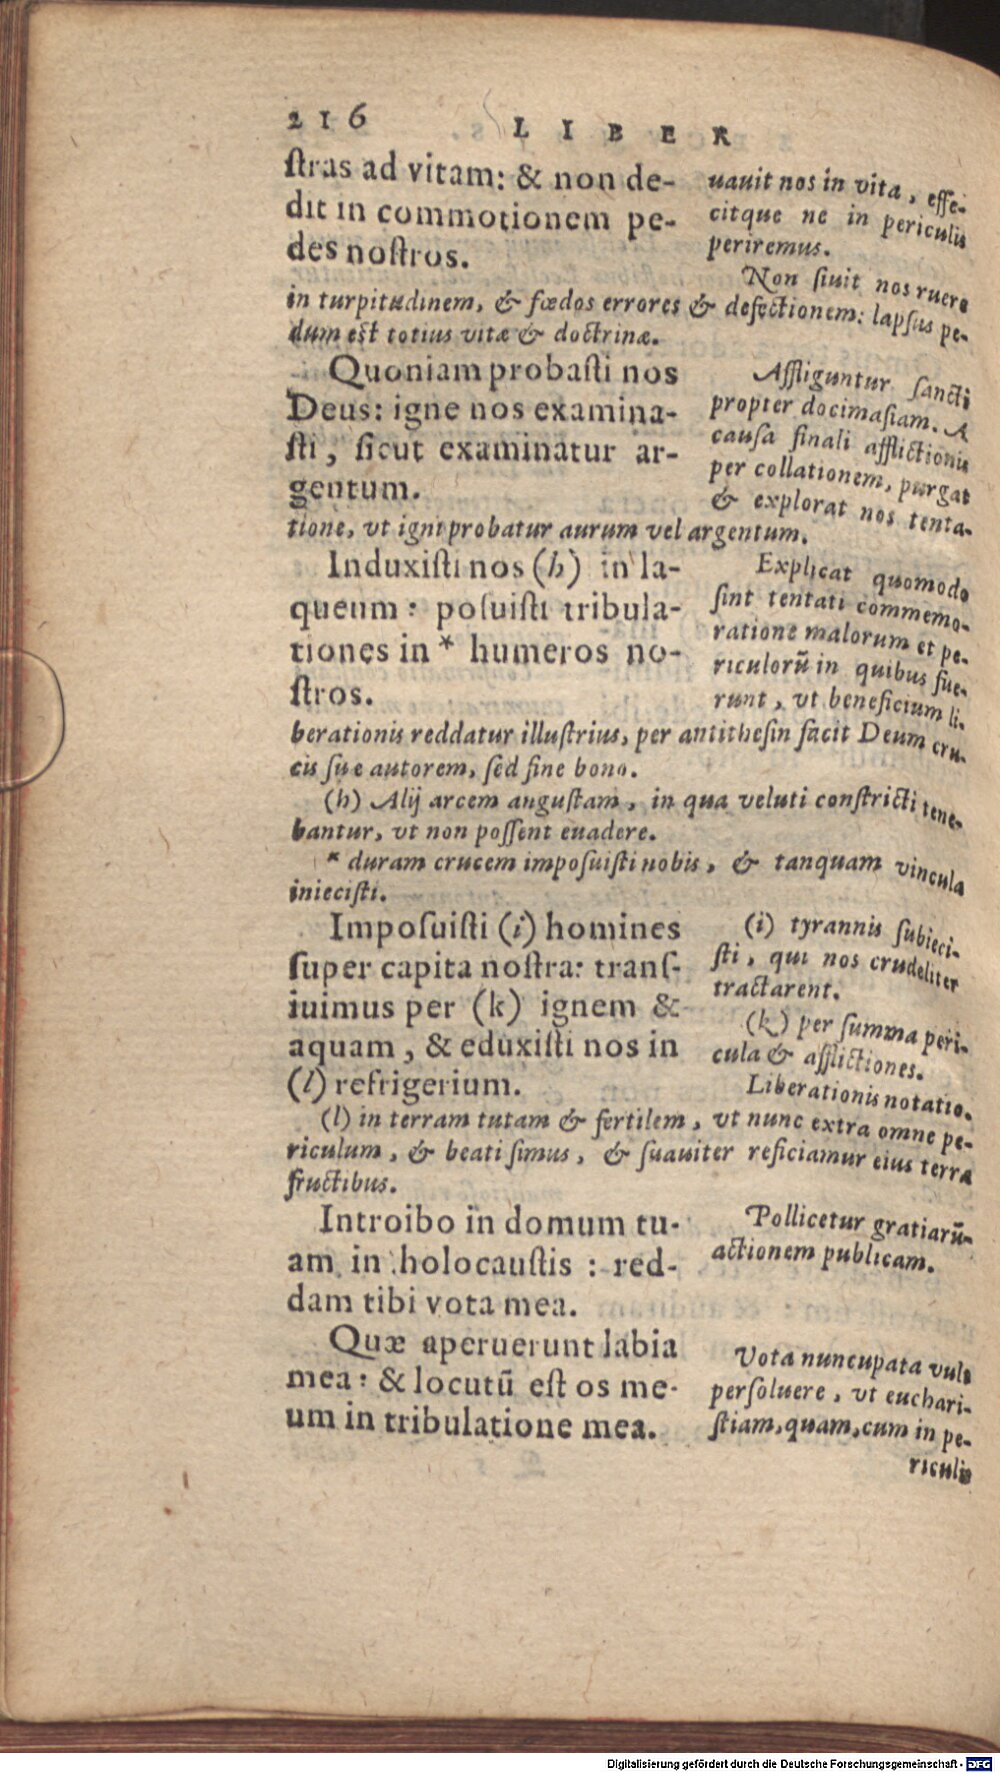 216 LIBER
ſtras ad vitam: & non de-
dit in commotionem pe-
des noſtros.
uauit nos in vita, effe-
citque ne in periculis
periremus.
Non ſiuit nos ruere
in turpitudinem, & fœdos errores & defectionem: lapſus pe-
dum eſt totius vitæ & doctrinæ.
Quoniam probaſti nos
Deus: igne nos examina-
ſti, ſicut examinatur ar-
gentum.
Affliguntur ſancti
propter docimaſiam. A
cauſa finali afflictionis
per collationem, purgat
& explorat nos tenta-
tione, vt igni probatur aurum vel argentum.
Induxiſti nos (h) in la-
queum: poſuiſti tribula-
tiones in * humeros no-
ſtros.
Explicat quomodo
ſint tentati commemo-
ratione malorum et pe-
riculorū in quibus fue-
runt, vt beneficium li-
berationis reddatur illuſtrius, per antitheſin facit Deum cru-
cis ſue autorem, ſed fine bono.
(h) Alij arcem anguſtam, in qua veluti conſtricti tene-
bantur, vt non poſſent euadere.
* duram crucem impoſuiſti nobis, & tanquam vincula
inieciſti.
Impoſuiſti (i) homines
ſuper capita noſtra: tranſ-
iuimus per (k) ignem &
aquam, & eduxiſti nos in
(l) refrigerium.
(i) tyrannis ſubieci-
ſti, qui nos crudeliter
tractarent.
(k) per ſumma peri-
cula & afflictiones.
Liberationis notatio.
(l) in terram tutam & fertilem, vt nunc extra omne pe-
riculum, & beati ſimus, & ſuauiter reficiamur eius terra
fructibus.
Introibo in domum tu-
am in holocauſtis: red-
dam tibi vota mea.
Pollicetur gratiarū-
actionem publicam.
Quæ aperuerunt labia
mea: & locutū eſt os me-
um in tribulatione mea.
Vota nuncupata vult
perſoluere, vt euchari-
ſtiam, quam, cum in pe-
riculis
Digitalisierung gefördert durch die Deutsche Forschungsgemeinschaft - DFG